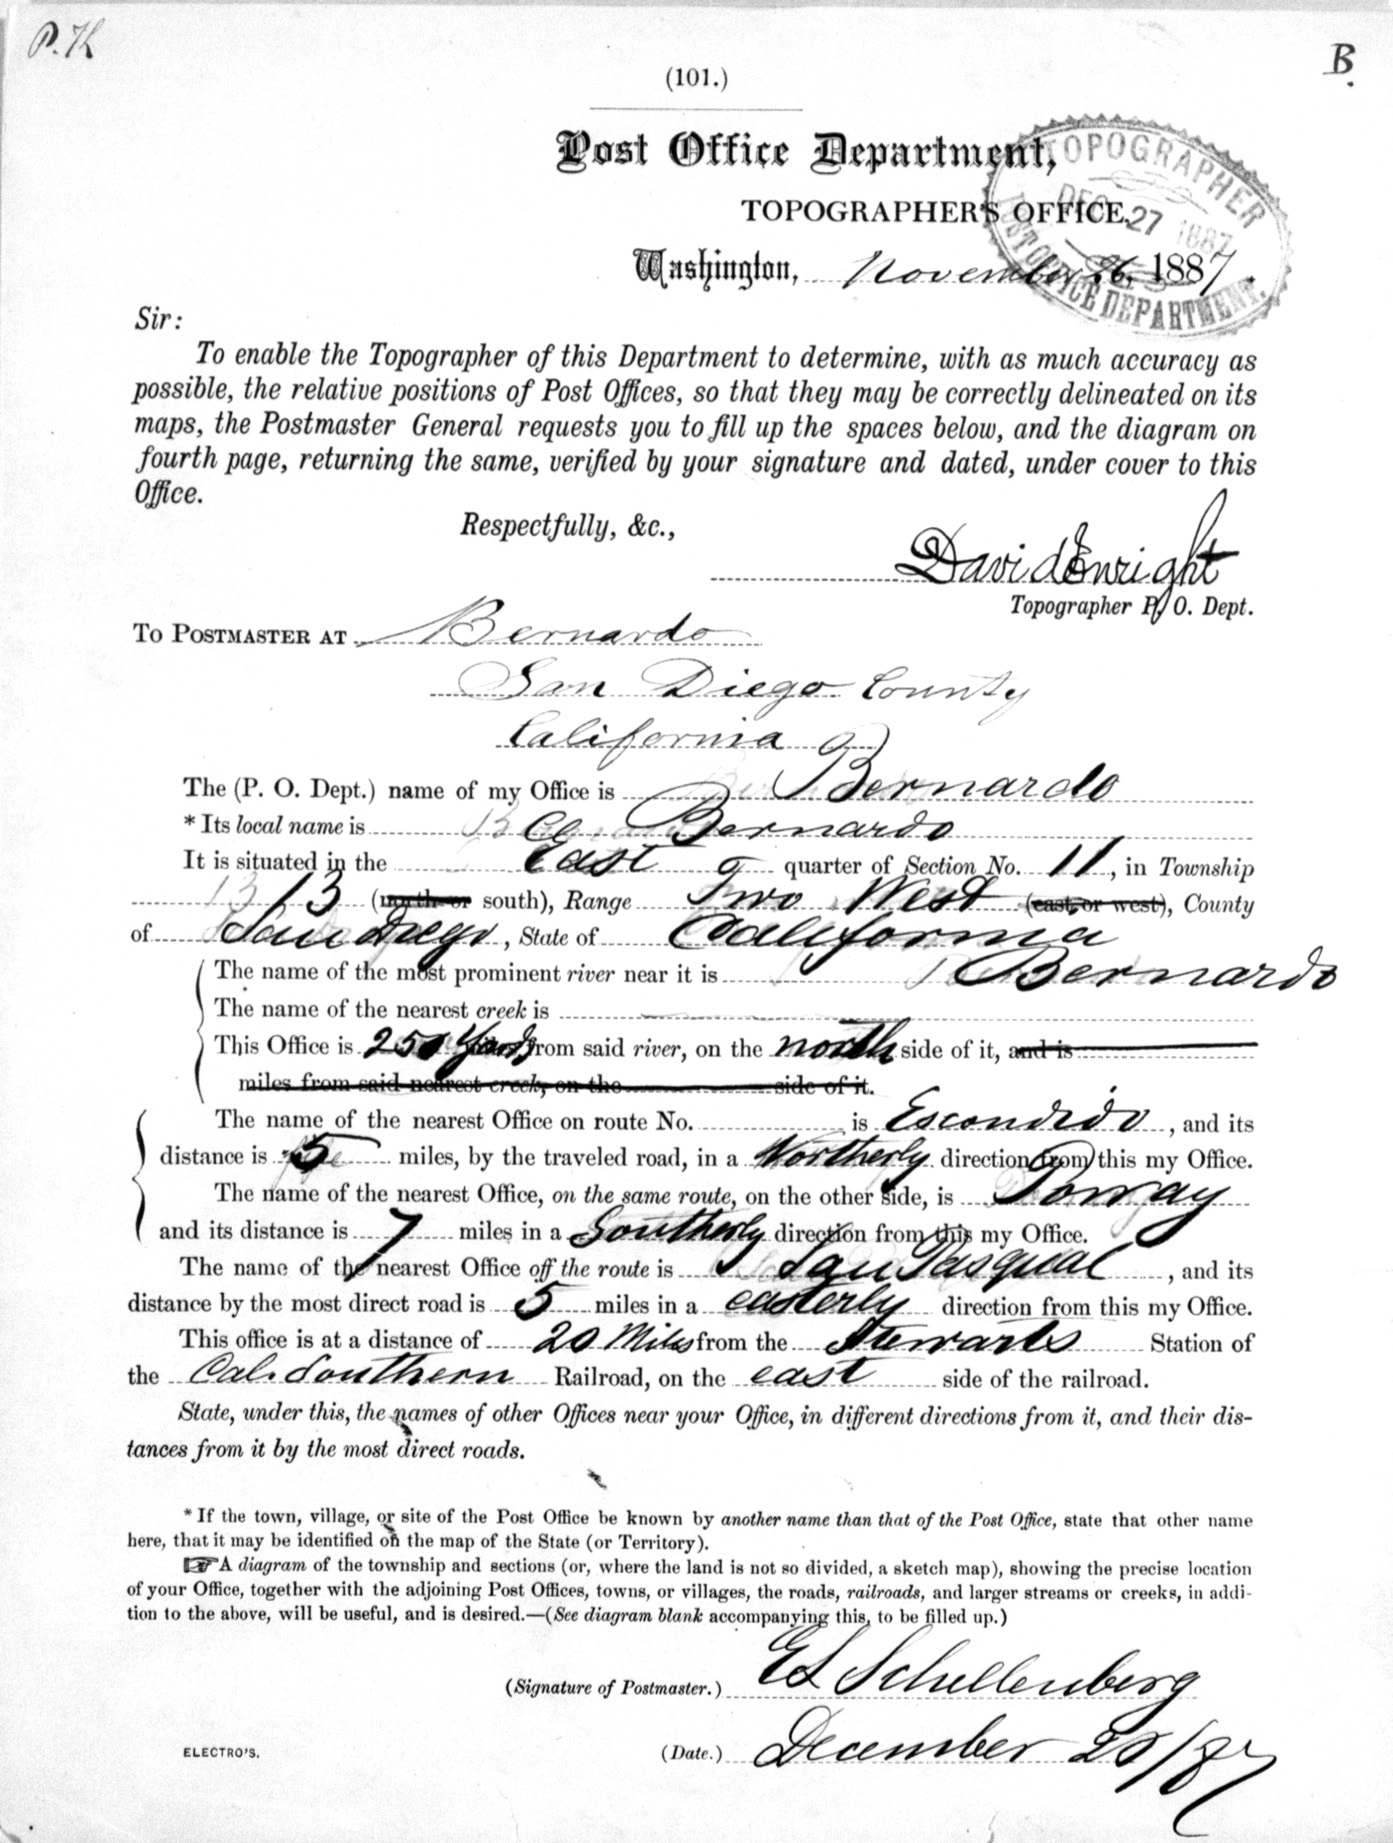 P. K
B.
(101.)
Post Office Department,
TOPOGRAPHER'S OFFICE,
TOPOGRAPHER
DEC 27 1887
POST OFFICE DEPARTMENT.
Washington, November 26, 1887.
Sir:
To enable the Topographer of this Department to determine, with as much accuracy as
possible, the relative positions of Post Offices, so that they may be correctly delineated on its
maps, the Postmaster General requests you to fill up the spaces below, and the diagram on
fourth page, returning the same, verified by your signature and dated, under cover to this
Office.
Respectfully, &c.,
David Enright
Topographer P. O. Dept.
To Postmaster at Bernardo
San Diego County
California
The (P. O. Dept.) name of my Office is Bernardo
* Its local name is Bernardo
It is situated in the East quarter of Section No. 11, in Township
13 (north or south), Range Two West (east or west), County
of San Diego, State of California
The name of the most prominent river near it is Bernardo
The name of the nearest creek is
This Office is 250 Yards from said river, on the north side of it, and is
miles from said nearest creek, on the side of it.
The name of the nearest Office on route No. is Escondido, and its
distance is 5 miles, by the traveled road, in a Northerly direction from this my Office.
The name of the nearest Office, on the same route, on the other side, is Poway
and its distance is 7 miles in a Southerly direction from this my Office.
The name of the nearest Office off the route is San Pasqual, and its
distance by the most direct road is 5 miles in a easterly direction from this my Office.
This office is at a distance of 20 Miles from the Stewarts Station of
the Cal. Southern Railroad, on the east side of the railroad.
State, under this, the names of other Offices near your Office, in different directions from it, and their dis-
tances from it by the most direct roads.
* If the town, village, or site of the Post Office be known by another name than that of the Post Office, state that other name
here, that it may be identified on the map of the State (or Territory).
☞ A diagram of the township and sections (or, where the land is not so divided, a sketch map), showing the precise location
of your Office, together with the adjoining Post Offices, towns, or villages, the roads, railroads, and larger streams or creeks, in addi-
tion to the above, will be useful, and is desired.—(See diagram blank accompanying this, to be filled up.)
(Signature of Postmaster.) E S Schellenberg
ELECTRO'S.
(Date.) December /87